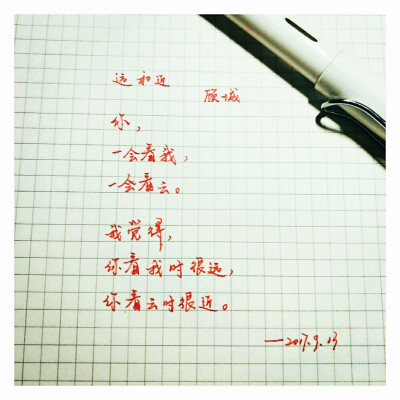 远和近
顾城
你,
一会看我,
一会看云。
我觉得,
你看我时很远,
你看云时很近。
—2017.9.13